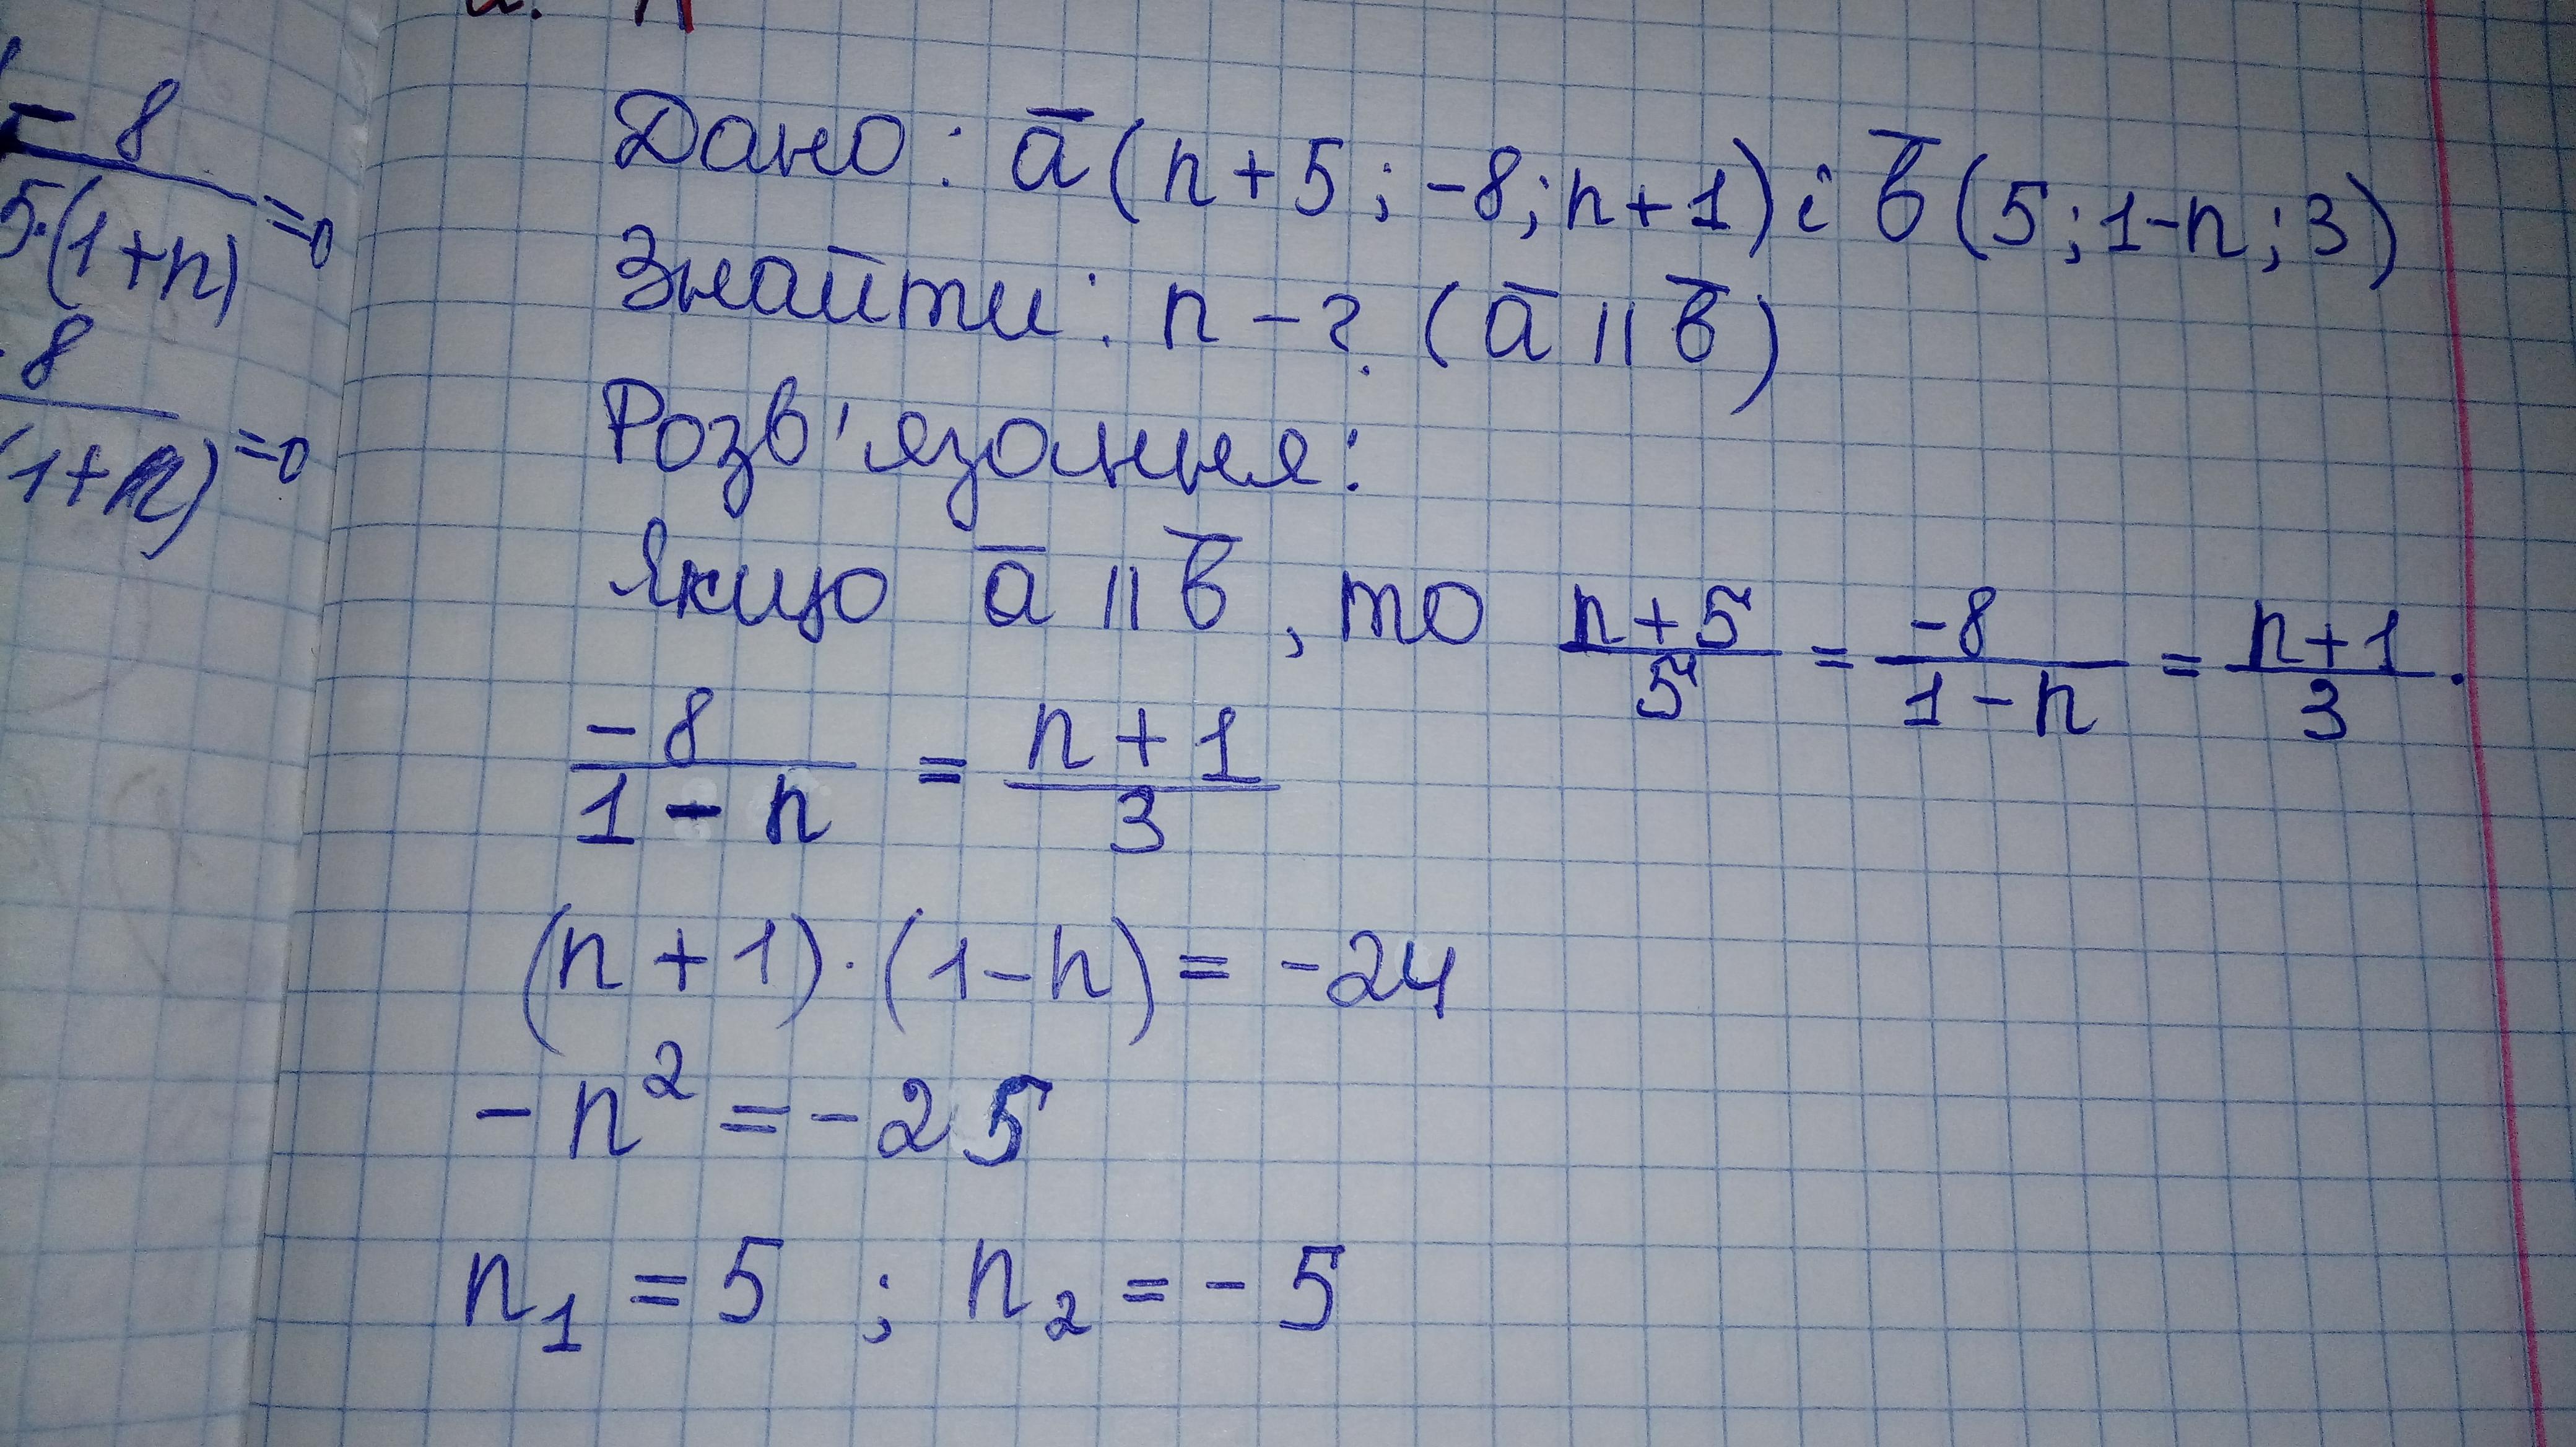 - 8
5·(1+n) =0
8
(1+n) =0
Дано: a̅ (n+5; -8; n+1) і b̅ (5; 1-n; 3)
Знайти: n - ? (a̅ || b̅)
Розв'язання:
Якщо a̅ || b̅, то (n+5)/5 = -8/(1-n) = (n+1)/3.
-8/(1-n) = (n+1)/3
(n+1)·(1-n) = -24
-n² = -25
n₁ = 5 ; n₂ = -5